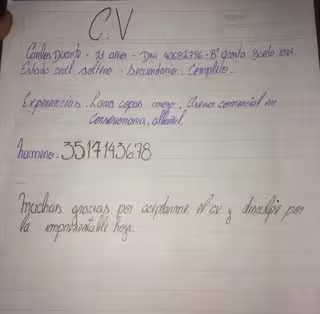 C.V
Carlos Duarte - 21 años - DNI 40682796 - B° acosta
Estado civil soltero - Secundario Completo -
Experiencias: Lava copas, mozo, Asesor comercial en
Concesionaria, albañil.
numero: 3517143678
Muchas gracias por aceptarme el cv y disculpe por
la impresentable hoja.